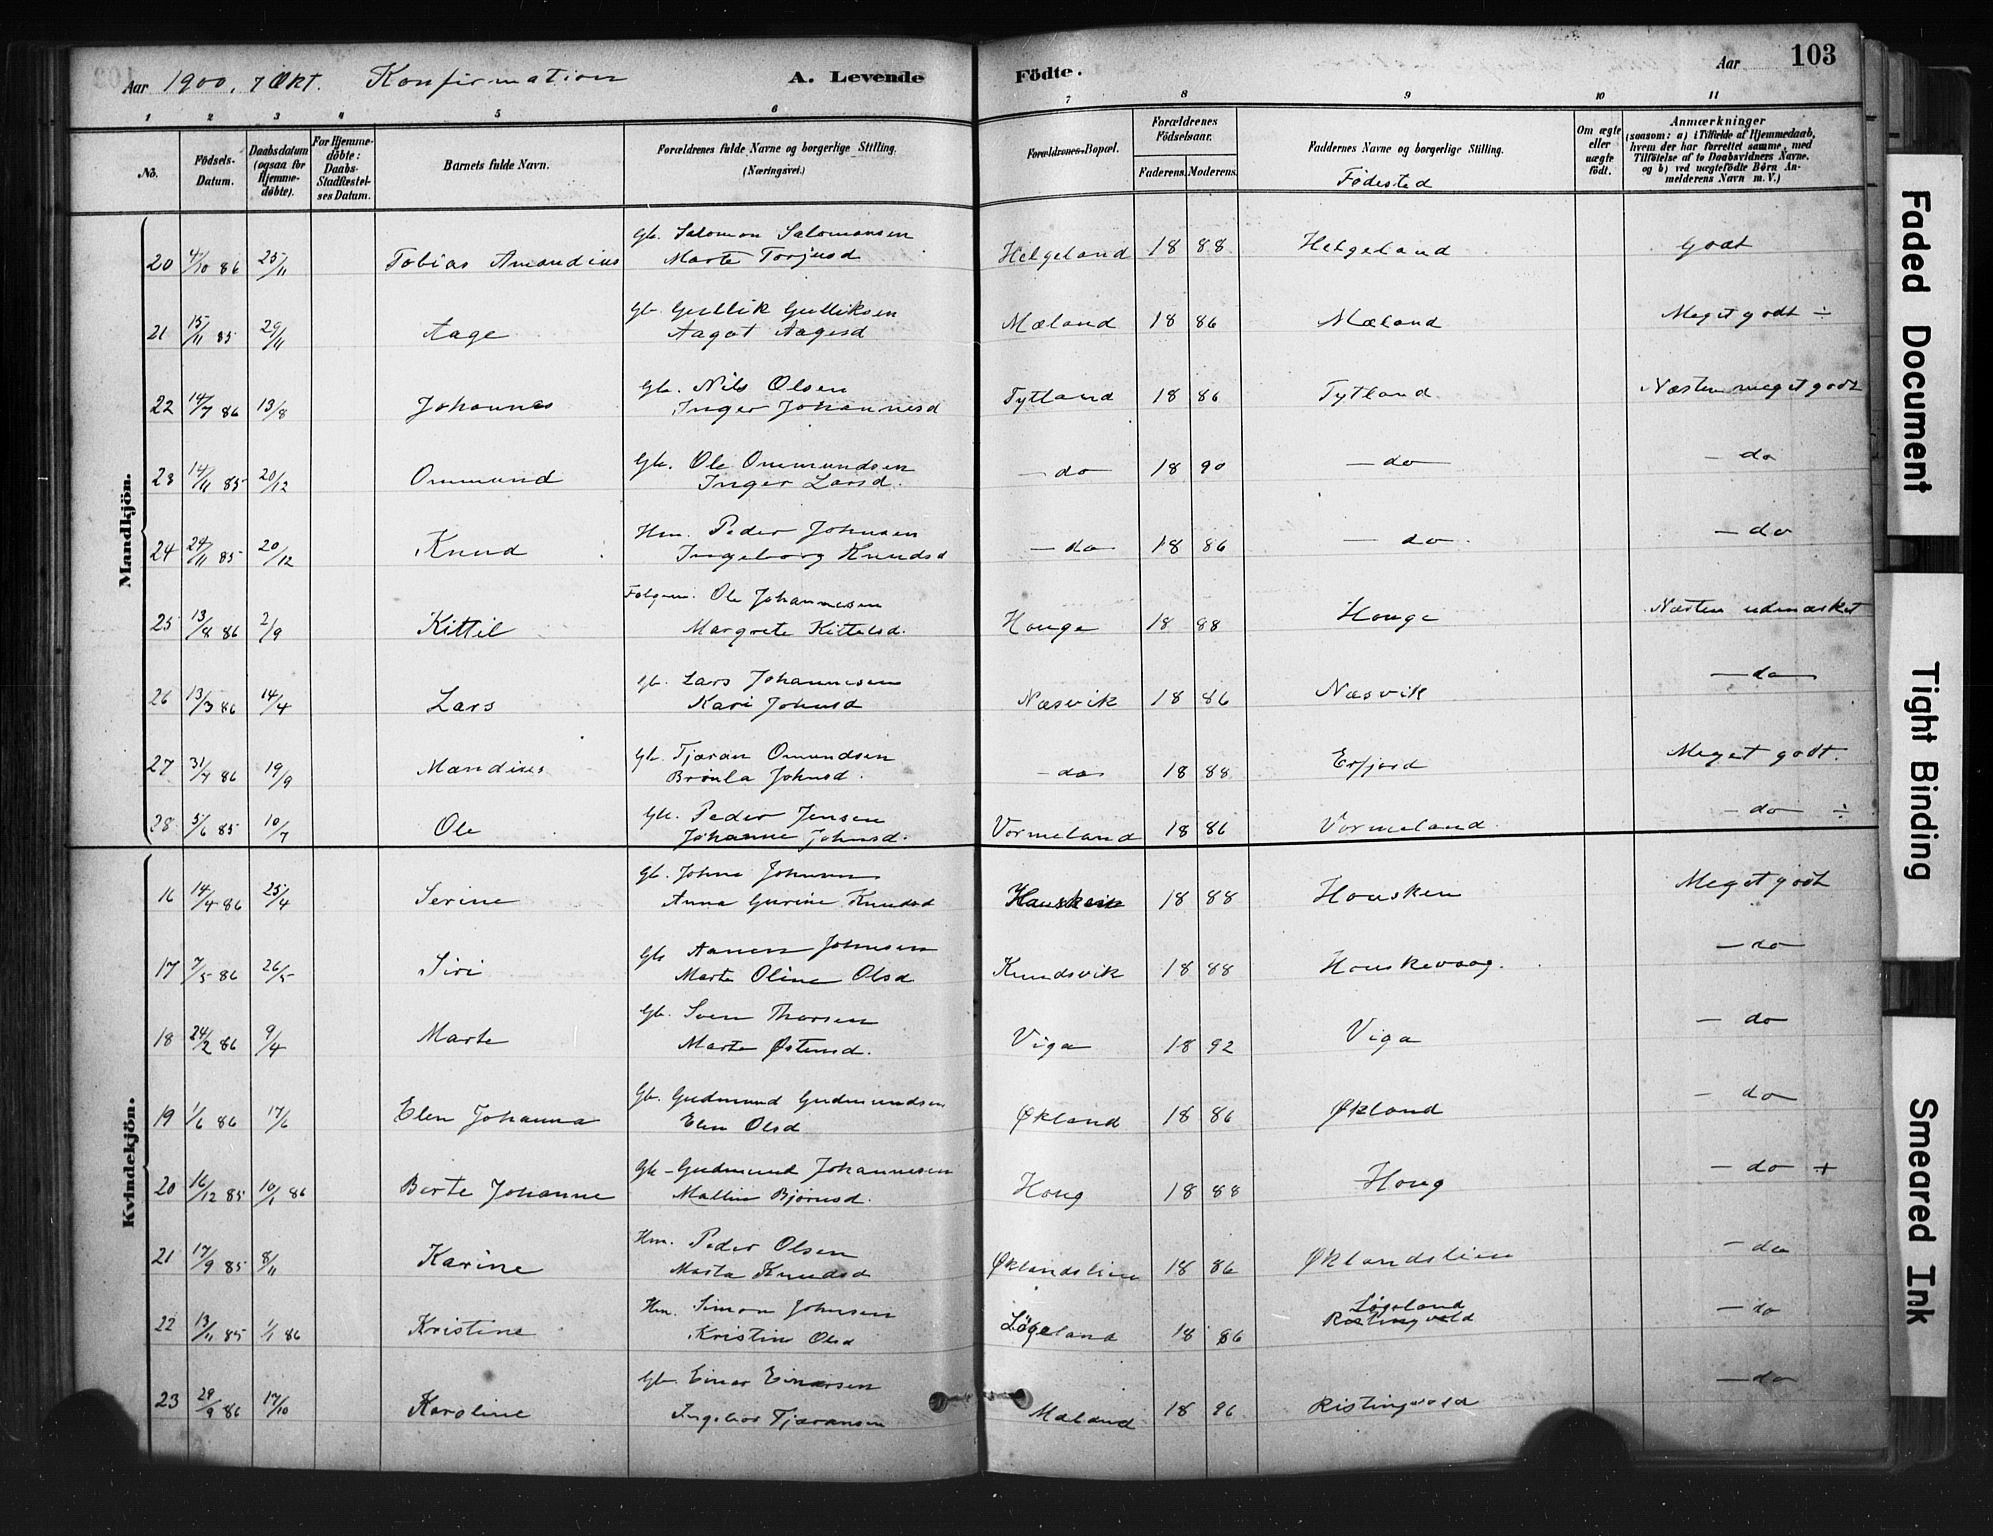 Aar 1900, 7 Okt. Konfirmation A. Levende Födte. Aar 103
1 2 3 4 5 6 7 8 9 10 11
No. Födsels-Datum. Daabsdatum (ogsaa for Hjemme-döbte). For Hjemme-döbte: Daabs-Stadfæstel-ses Datum. Barnets fulde Navn. Forældrenes fulde Navne og borgerlige Stilling. (Næringsvei.) Forældrenes Bopæl. Forældrenes Födselsaar. Faderens. Moderens. Faddernes Navne og borgerlige Stilling. Fødested Om ægte eller uægte født. Anmærkninger (saasom: a) i Tilfælde af Hjemmedaab, hvem der har forrettet samme, med Tilföielse af to Daabsvidners Navne, og b) ved uægtefödte Börn An-melderens Navn m. V.)
Mandkjön.
20 4/10 86 25/11 Tobias Amandius Gb. Salomon Salomonsen Marte Torjusd Helgeland 18 88 Helgeland Godt
21 15/11 85 29/11 Aage Gb. Gullik Gulliksen Aagot Aagesd Mæland 18 86 Mæland Meget godt ÷
22 14/7 86 13/8 Johannes Gb. Nils Olsen Inger Johannesd Tytland 18 86 Tytland Næsten meget godt
23 14/11 85 20/12 Ommund Gb. Ole Ommundsen Inger Larsd. – do 18 90 – do – do
24 24/11 85 20/12 Knud Hm. Peder Johnsen Ingeborg Knudsd – do 18 86 – do – do
25 13/8 86 2/9 Kittil Ole Johannesen Margrete Kittelsd. Houge 18 88 Houge Næsten udmærket
26 13/3 86 14/4 Lars Gb. Lars Johannesen Kari Johnsd Næsvik 18 86 Næsvik – do
27 31/7 86 19/9 Mandius Gb. Tjæran Omundsen Brønla Johnsd. – do 18 88 Erfjord Meget godt.
28 5/6 85 10/7 Ole Gb. Peder Jensen Johanne Johnsd. Vormeland 18 86 Vormeland – do ÷
Kvindekjön.
16 14/4 86 25/4 Serine Gb. Johne Johnsen Anna Gurine Knudsd Hausken 18 88 Housken Meget godt
17 7/5 86 26/5 Siri Gb Aanen Johnsen Marte Oline Olsd Knudsvik 18 88 Houskevaag. – do
18 24/2 86 9/4 Marte Gb. Sven Thorsen Marte Østensd. Viga 18 92 Viga – do
19 1/6 86 17/6 Elen Johanna Gb. Gudmund Gudmundsen Elen Olsd Økland 18 86 Økland – do
20 16/12 85 10/1 86 Berte Johanne Gb – Gudmund Johannesen Mallin Bjørnsd. Houg 18 88 Houg – do +
21 17/9 85 8/11 Karine Hm. Peder Olsen Marta Knudsd Øklandslien 18 86 Øklandslien – do
22 13/11 85 1/1 86 Kristine Hm. Simon Johnsen Kristin Olsd Løgeland 18 86 Løgeland Ristingvold – do
23 29/9 86 17/10 Karoline Gb. Einar Einarsen Ingebor Tjæransen Mæland 18 96 Ristingvold – do
Faded Document
Tight Binding
Smeared Ink